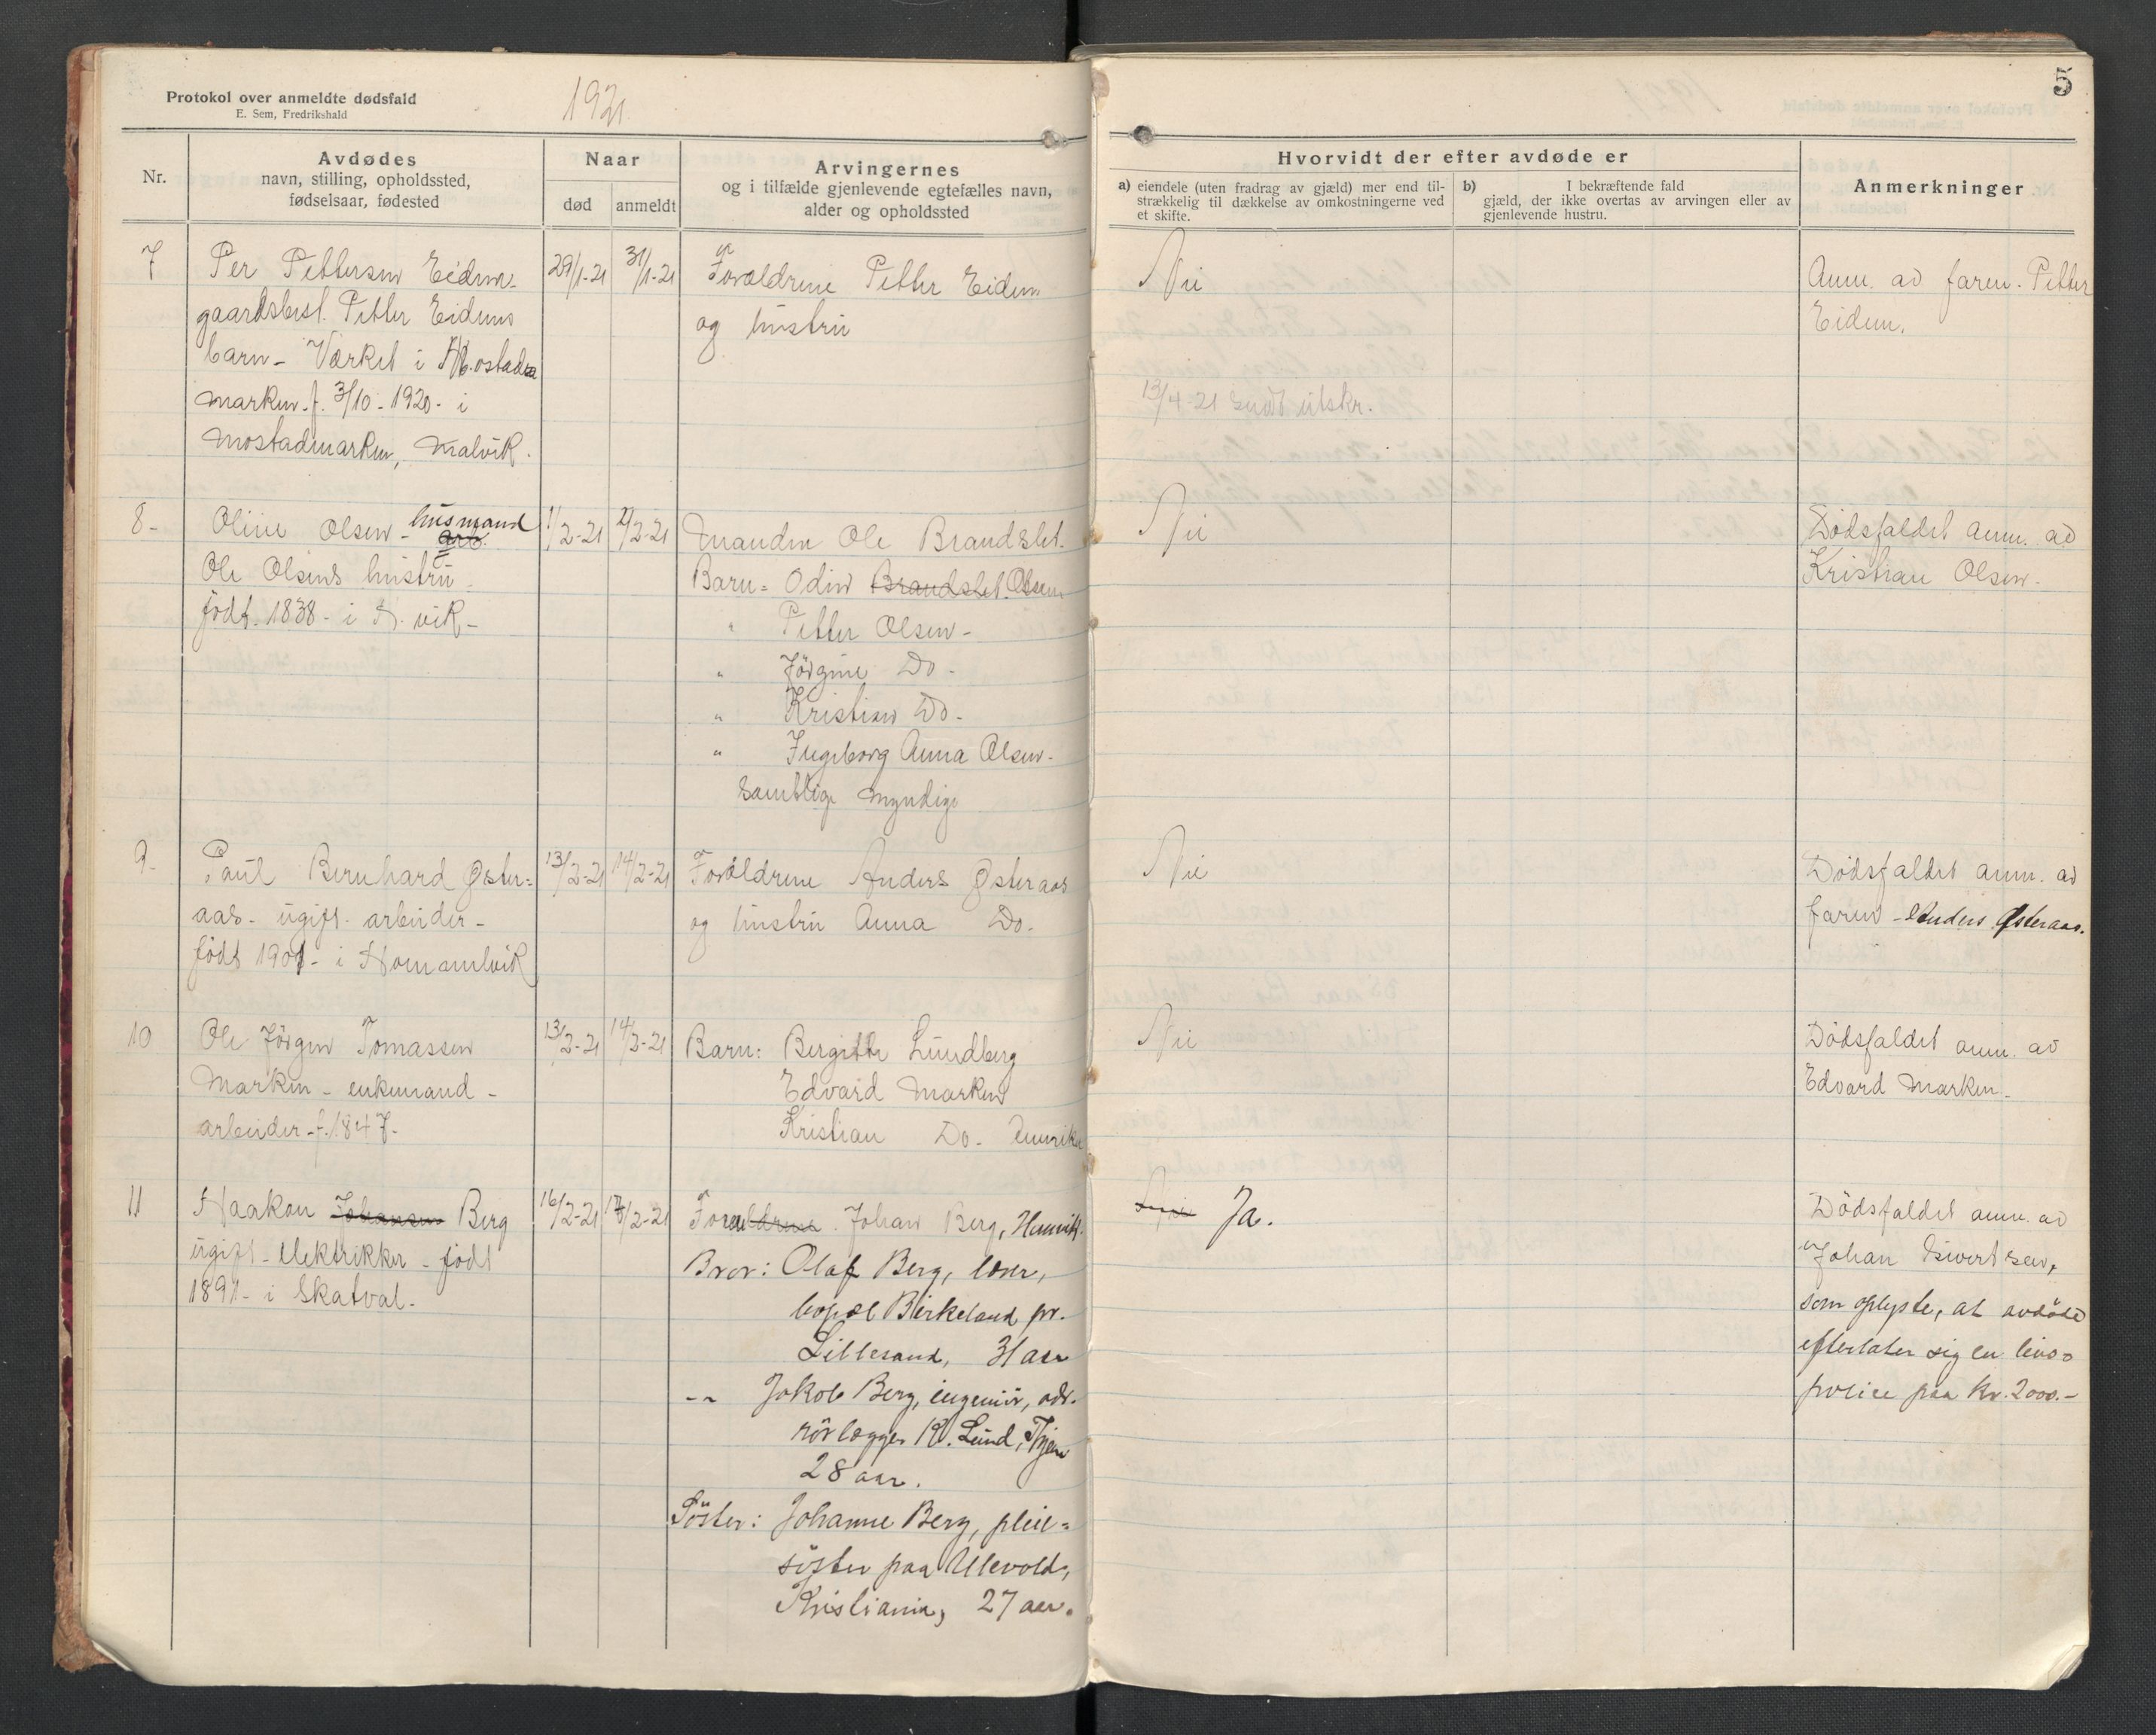 Protokol over anmeldte dødsfald
E. Sem, Fredrikshald
1921.
Nr.
Avdødes
navn, stilling, opholdssted,
fødselsaar, fødested
Naar
død
anmeldt
Arvingernes
og i tilfælde gjenlevende egtefælles navn,
alder og opholdssted
7
Per Pettersen Eidem-
gaardsbest. Petter Eidems
barn - Værket i Mostad
marken. f. 3/10 - 1920 - i
Mostadmarken, Malvik.
29/1-21
31/1-21
Forældrene Petter Eidem
og hustru
8-
Oline Olsen - husmand
arb.
Ole Olsens hustru -
født. 1838 - i H.vik -
1/2-21
2/2-21
Manden Ole Brandslet.
Barn = Odin Brandslet. Olsen
" Petter Olsen -
" Jörgine Do -
" Kristian Do -
" Ingeborg Anna Olsen -
Samtlige myndige
9-
Paul Bernhard Øster=
aas - ugift - arbeider -
født 1901 - i Hommelvik
13/2-21
14/2-21
Forældrene Anders Østeraas
og hustru Anna Do.
10
Ole Jörgen Tomassen
Marken - enkemand -
arbeider - f. 1847 -
13/2-21
14/2-21
Barn: Bergitte Lundberg
Edvard Marken
Kristian Do - Amerika
11
Haakon Johansen Berg
ugift - elektrikker - født
1891 - i Skatval -
16/2-21
17/2-21
Forældrene. Johan Berg, Hmvik.
Bror: Olaf Berg, lærer,
bopæl Birkeland pr.
Lillesand, 31 aar
-"- Jakob Berg, ingeniör, adr.
rörlægger K. Lund, Tjem
28 aar.
Söster: Johanne Berg, pleie=
söster paa Ullevold,
Kristiania, 27 aar.
5
Hvorvidt der efter avdøde er
a) eiendele (uten fradrag av gjæld) mer end til-
strækkelig til dækkelse av omkostningerne ved
et skifte.
b) I bekræftende fald
gjæld, der ikke overtas av arvingen eller av
gjenlevende hustru.
Anmerkninger
Nei
13/4 21 sendt utskr.
Anm. av faren. Petter
Eidem.
Nei
Dödsfaldet anm. av
Kristian Olsen -
Nei
Dödsfaldet anm. av
faren - Anders Østeraas.
Nei
Dödsfaldet anm. av
Edvard Marken -
Nei Ja.
Dödsfaldet anm. av
Johan Sivertsen,
som oplyste, at avdöde
efterlater sig en livs=
police paa Kr. 2000.-